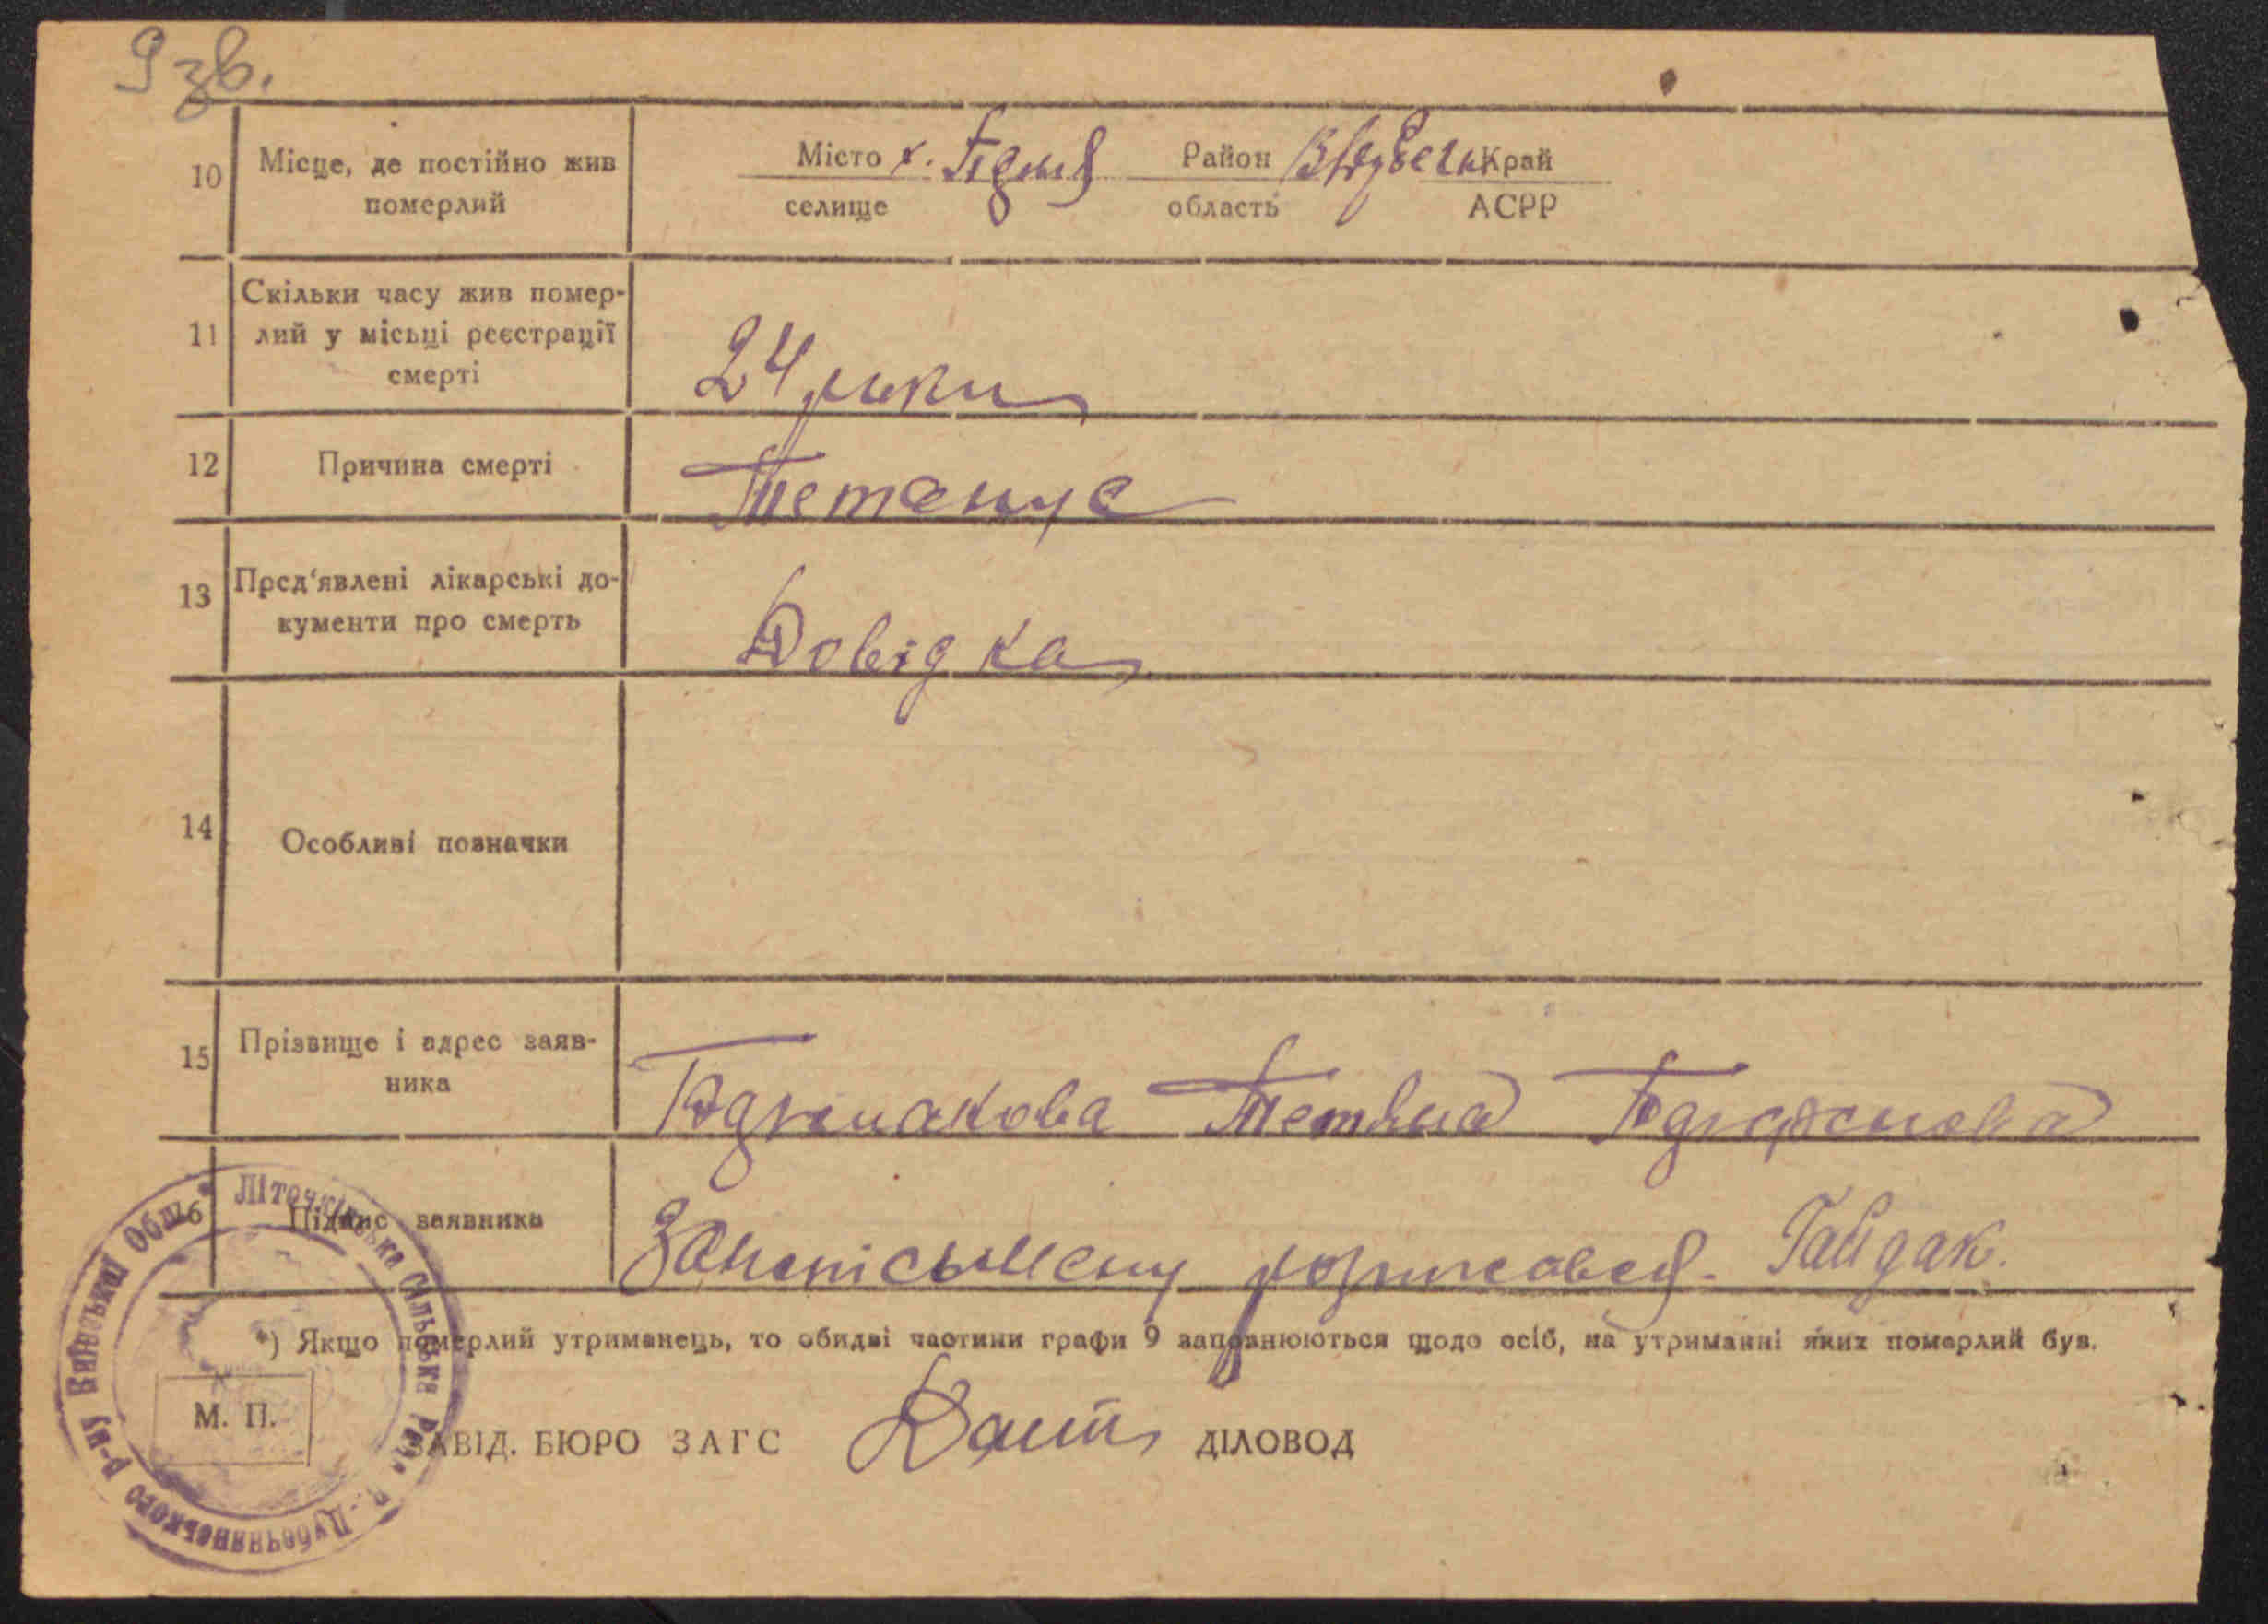 9 зв.
10 Місце, де постійно жив померлий
Місто х. Район Край
селище область АСРР
11 Скільки часу жив помер-
лий у місьці реєстрації
смерті
24 роки
12 Причина смерті Тетанус
13 Пред'явлені лікарські до-
кументи про смерть
Довідка
14 Особливі позначки
15 Прізвище і адрес заяв-
ника
Тетяна
16 Підпис заявника
Гайдак.
*) Якщо померлий утриманець, то обидві частини графи 9 заповнюються щодо осіб, на утриманні яких померлий був.
М. П.
ЗАВІД. БЮРО ЗАГС ДІЛОВОД
Літочківська Сільська Рада В.-Дубечнянського р-ну Київської Обл.